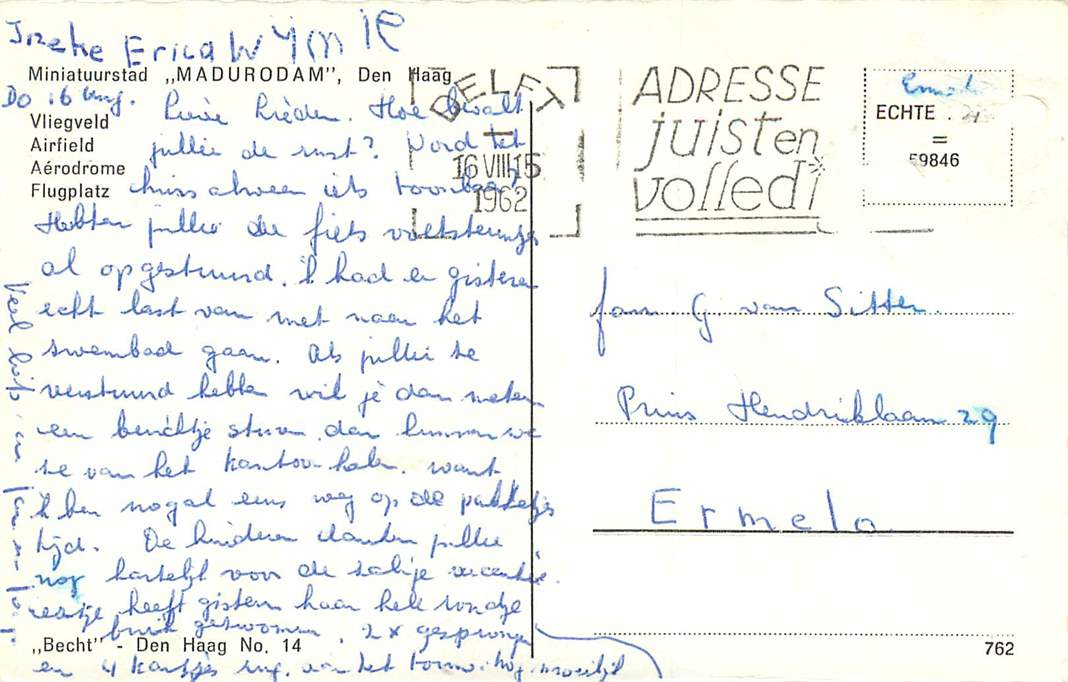 Ineke Erica W
Miniatuurstad „MADURODAM", Den Haag
Do 16 Aug.
Vliegveld
Airfield
Aérodrome
Flugplatz
Lieve Lieden. Hoe bevalt
jullie de rust? Word het
thuis alweer iets
Hebben jullie de fiets
al opgestuurd. ik had er gisteren
echt last van met naar het
zwembad gaan. Als jullie ze
verstuurd hebben wil je dan meteen
een berichtje sturen, dan kunnen we
ze van het kantoor halen. want
ik ben nogal eens weg op de pakketjes
tijd. De kinderen danken jullie
nog hartelijk voor de zalige vacantie.
heeft gisteren haar hele rondje
gezwommen. 2x gesprongen
en 4 kantjes
Veel liefs
„Becht" - Den Haag No. 14
DELFT
16 VIII 15
1962
ADRESSE
juist en
volledi
Ermelo
ECHTE
=
59846
fam G. van Sitter.
Prins Hendriklaan 29
Ermelo
762